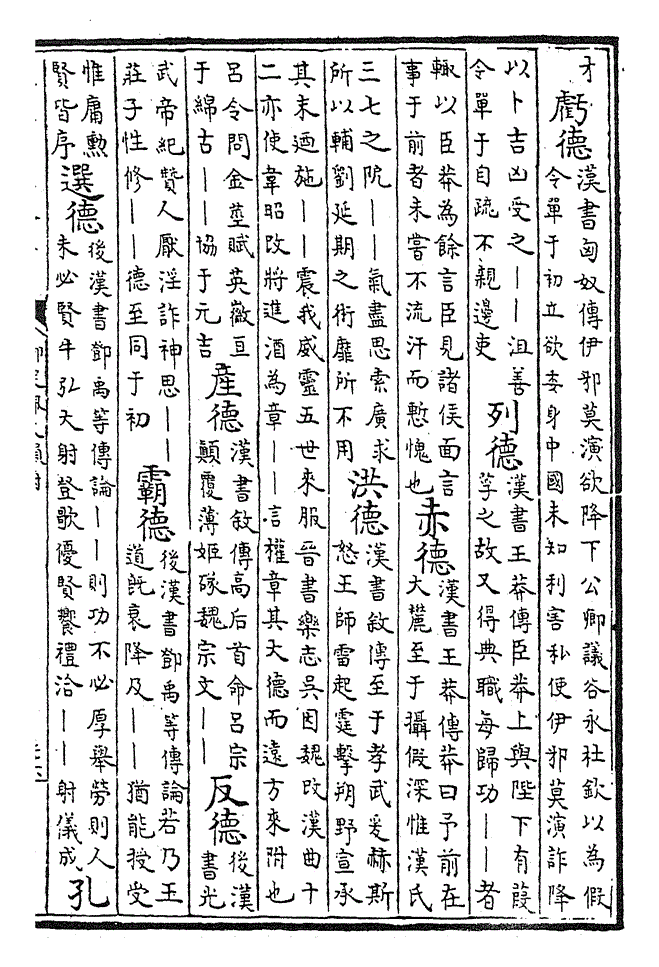 才
虧德
漢書匈奴傳伊邪莫演欲降下公卿議谷永杜欽以為假
令單于初立欲委身中國未知利害私使伊邪莫演詐降
以卜吉凶受之｜｜沮善
令單于自疏不親邊吏
列德
漢書王莽傳臣莽上與陛下有葭
莩之故又得典職每歸功｜｜者
輒以臣莽為餘言臣見諸侯面言
事于前者未嘗不流汗而慙愧也
赤德
漢書王莽傳莽曰予前在
大麓至于攝假深惟漢氏
三七之阸｜｜氣盡思索廣求
所以輔劉延期之術靡所不用
洪德
漢書敘傳至于孝武爰赫斯
怒王師雷起霆擊朔野宣承
其末迺施｜｜震我威靈五世來服晉書樂志吳因魏改漢曲十
二亦使韋昭改將進酒為章｜｜言權章其大德而遠方來附也
呂令問金莖賦英徽亘
于綿古｜｜協于元吉
産德
漢書敘傳高后首命呂宗
顛覆薄姬㒸魏宗文｜｜
反德
後漢
書光
武帝紀贊人厭淫詐神思｜｜
莊子性修｜｜德至同于初
霸德
後漢書鄧禹等傳論若乃王
道既衰降及｜｜猶能授受
惟庸勲
賢皆序
選德
後漢書鄧禹等傳論｜｜則功不必厚舉勞則人
未必賢牛弘大射登歌優賢饗禮洽｜｜射儀成
孔